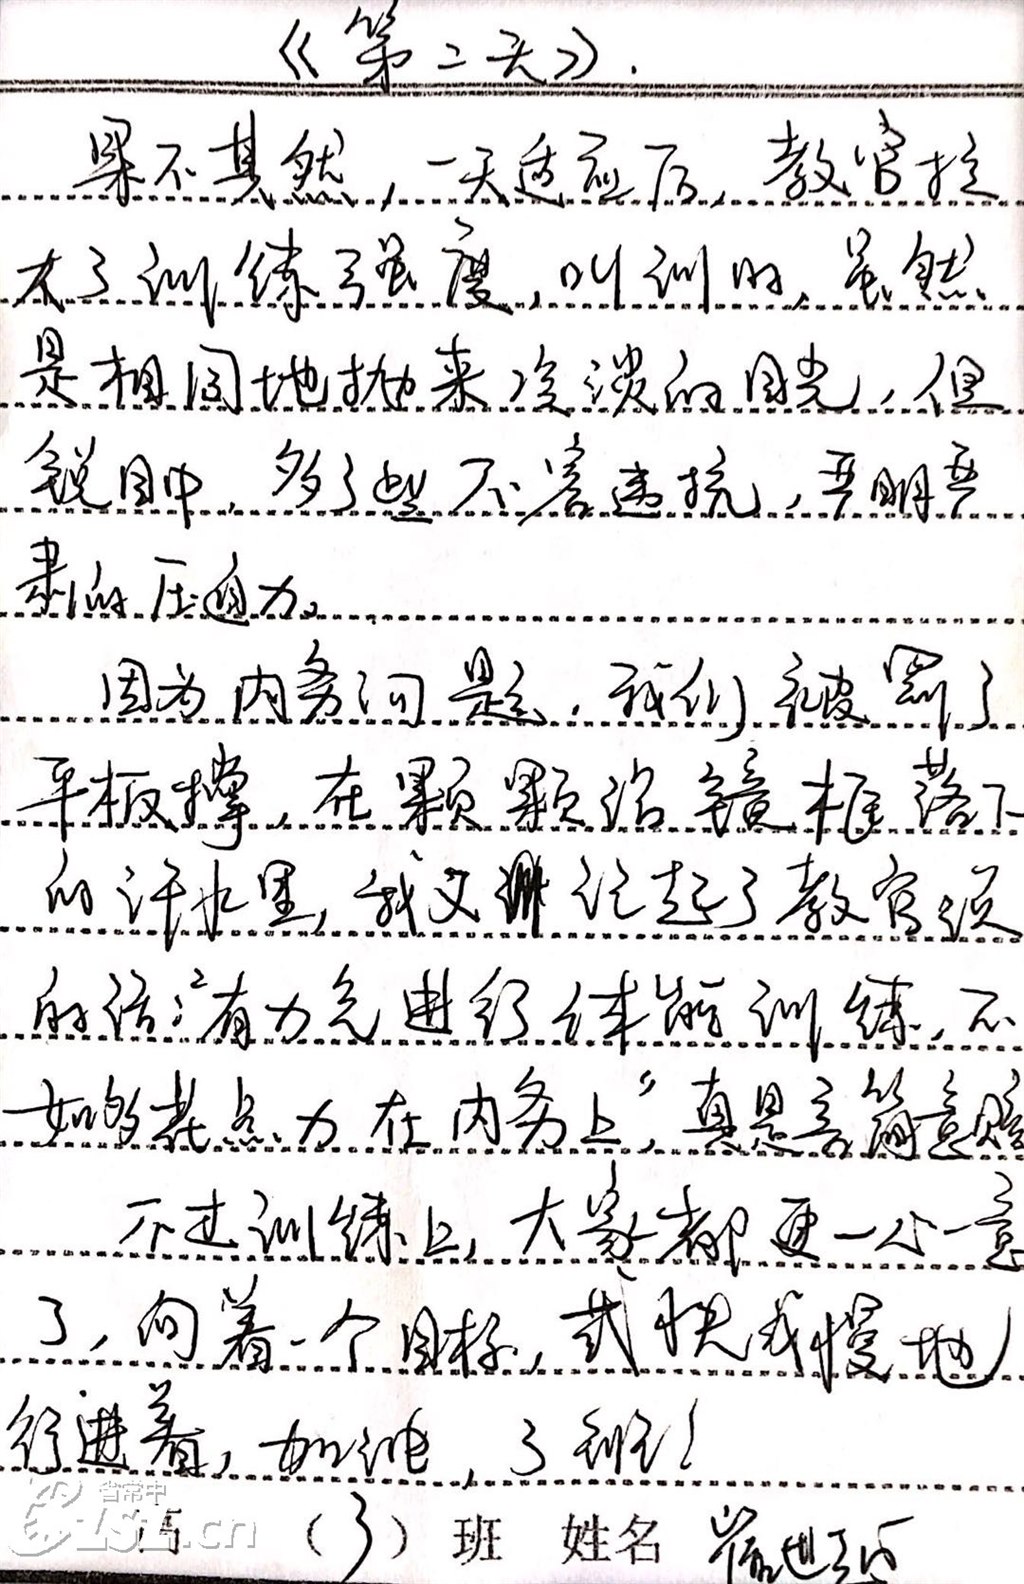 《第二天》.
果不其然,一天适应后,教官拉
大了训练强度,叫训时,虽然
是相同地抛来冷淡的目光,但
锐目中,多了些不容违抗,严明严
肃的压迫力。
因为内务问题,我们被罚了
平板撑,在颗颗沿镜框落下
的汗水里,我又记起了教官颂
的话:"有力先进行体能训练,不
如多花点力在内务上",真是言简意赅
不过训练上,大家都更一心一意
了,向着一个目标,或快或慢地
行进着,加油,了班!
省常中
CZSZ.cn
高 (3)班 姓名